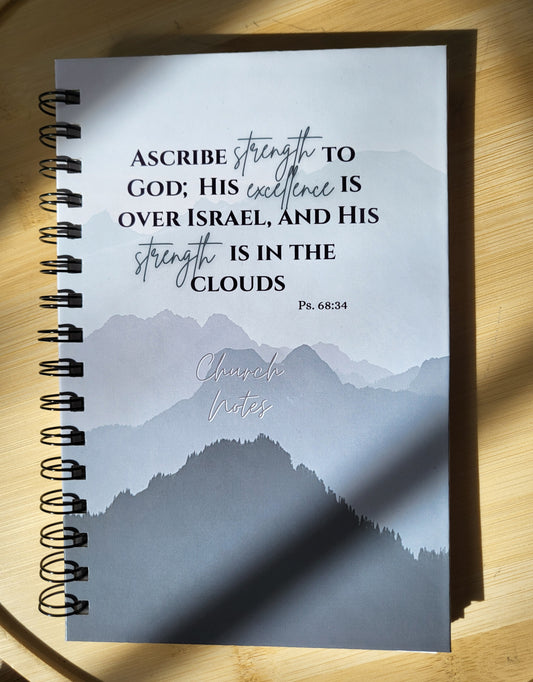 Ascribe strength to
God; His excellence is
over Israel, and His
strength is in the
clouds
Ps. 68:34
Church
Notes